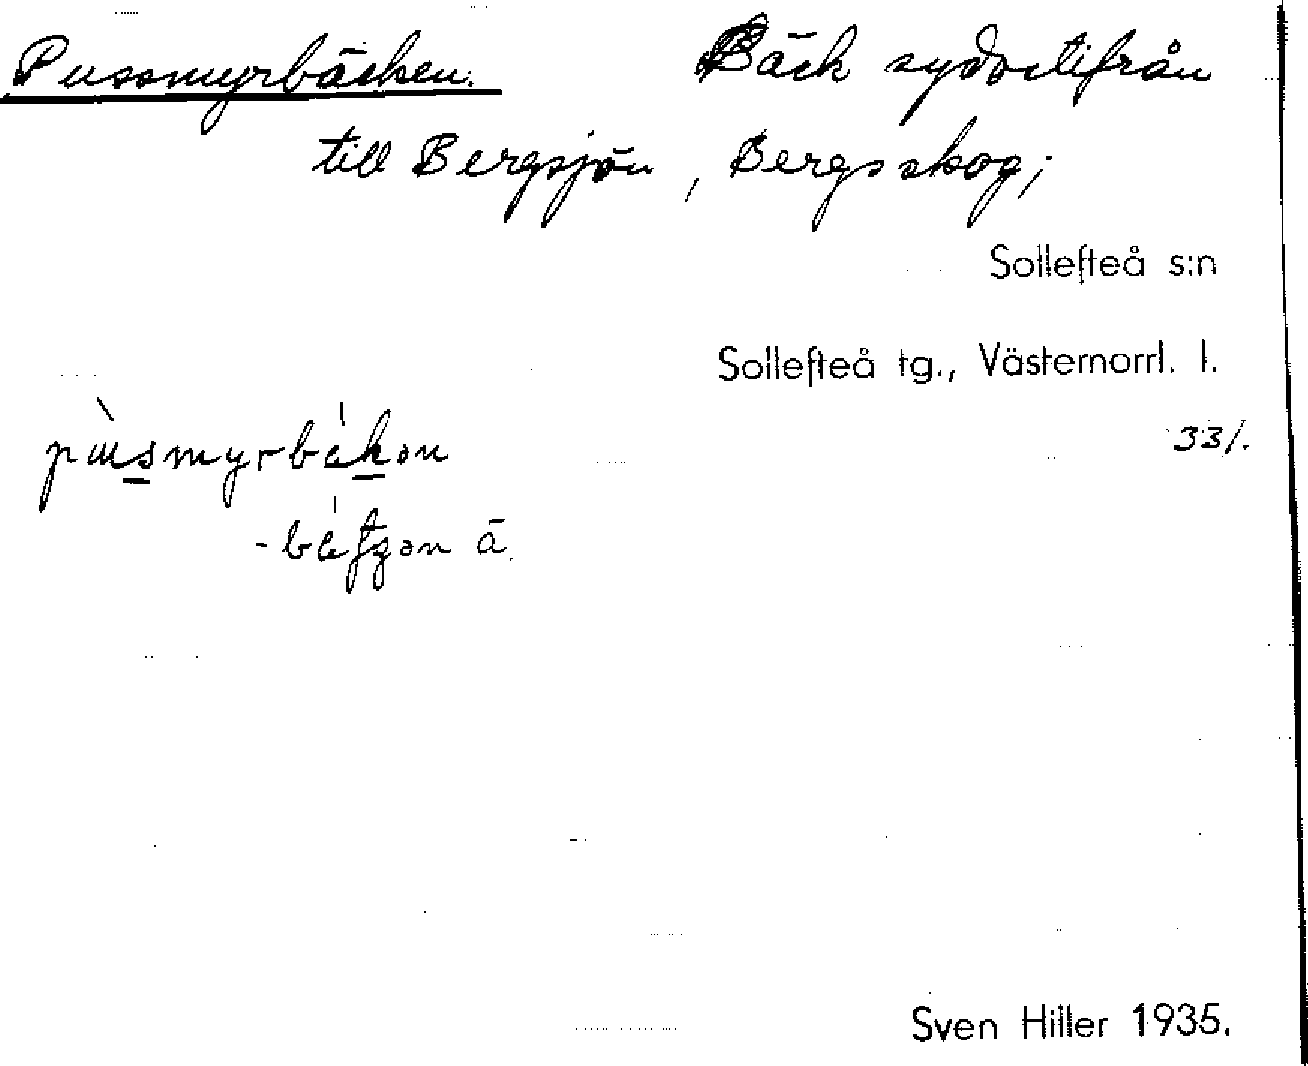 Pussmyrbäcken. Bäck sydostifrån
till Bergsjön, Bergs skog;
Sollefteå s:n
Sollefteå tg., Västernorrl. l.
33/.
Sven Hiller 1935.